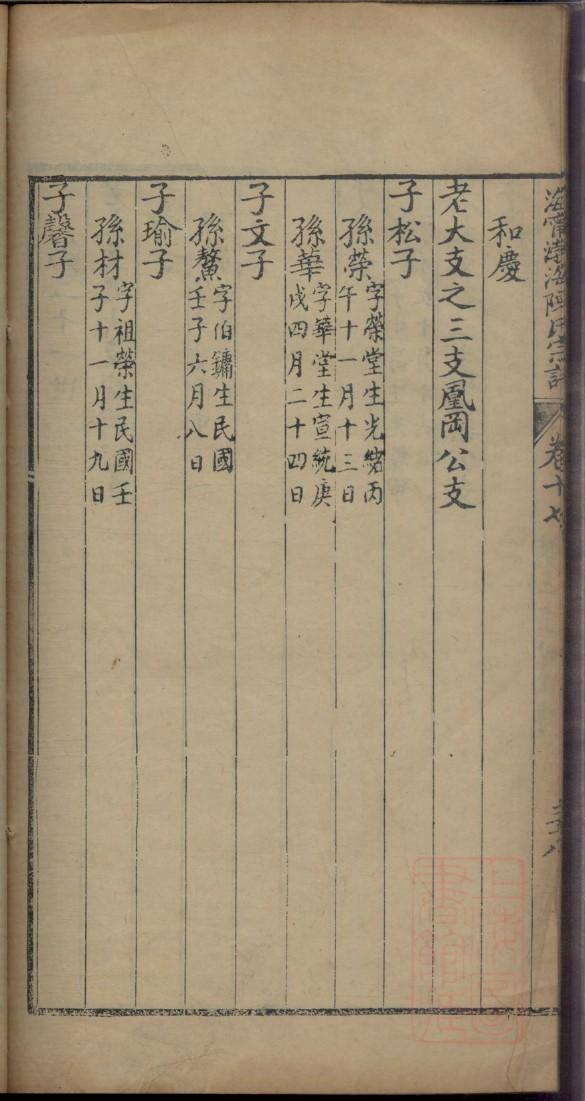 海甯渤海陳氏宗譜 卷十七
和慶
老大支之三支鳳岡公支
子松子
孫榮 字榮堂生光緒丙
午十一月十三日
孫華 字華堂生宣統庚
戌四月二十四日
子文子
孫鰲 字伯鏞生民國
壬子六月八日
子瑜子
孫材 字祖榮生民國壬
子十一月十九日
子馨子